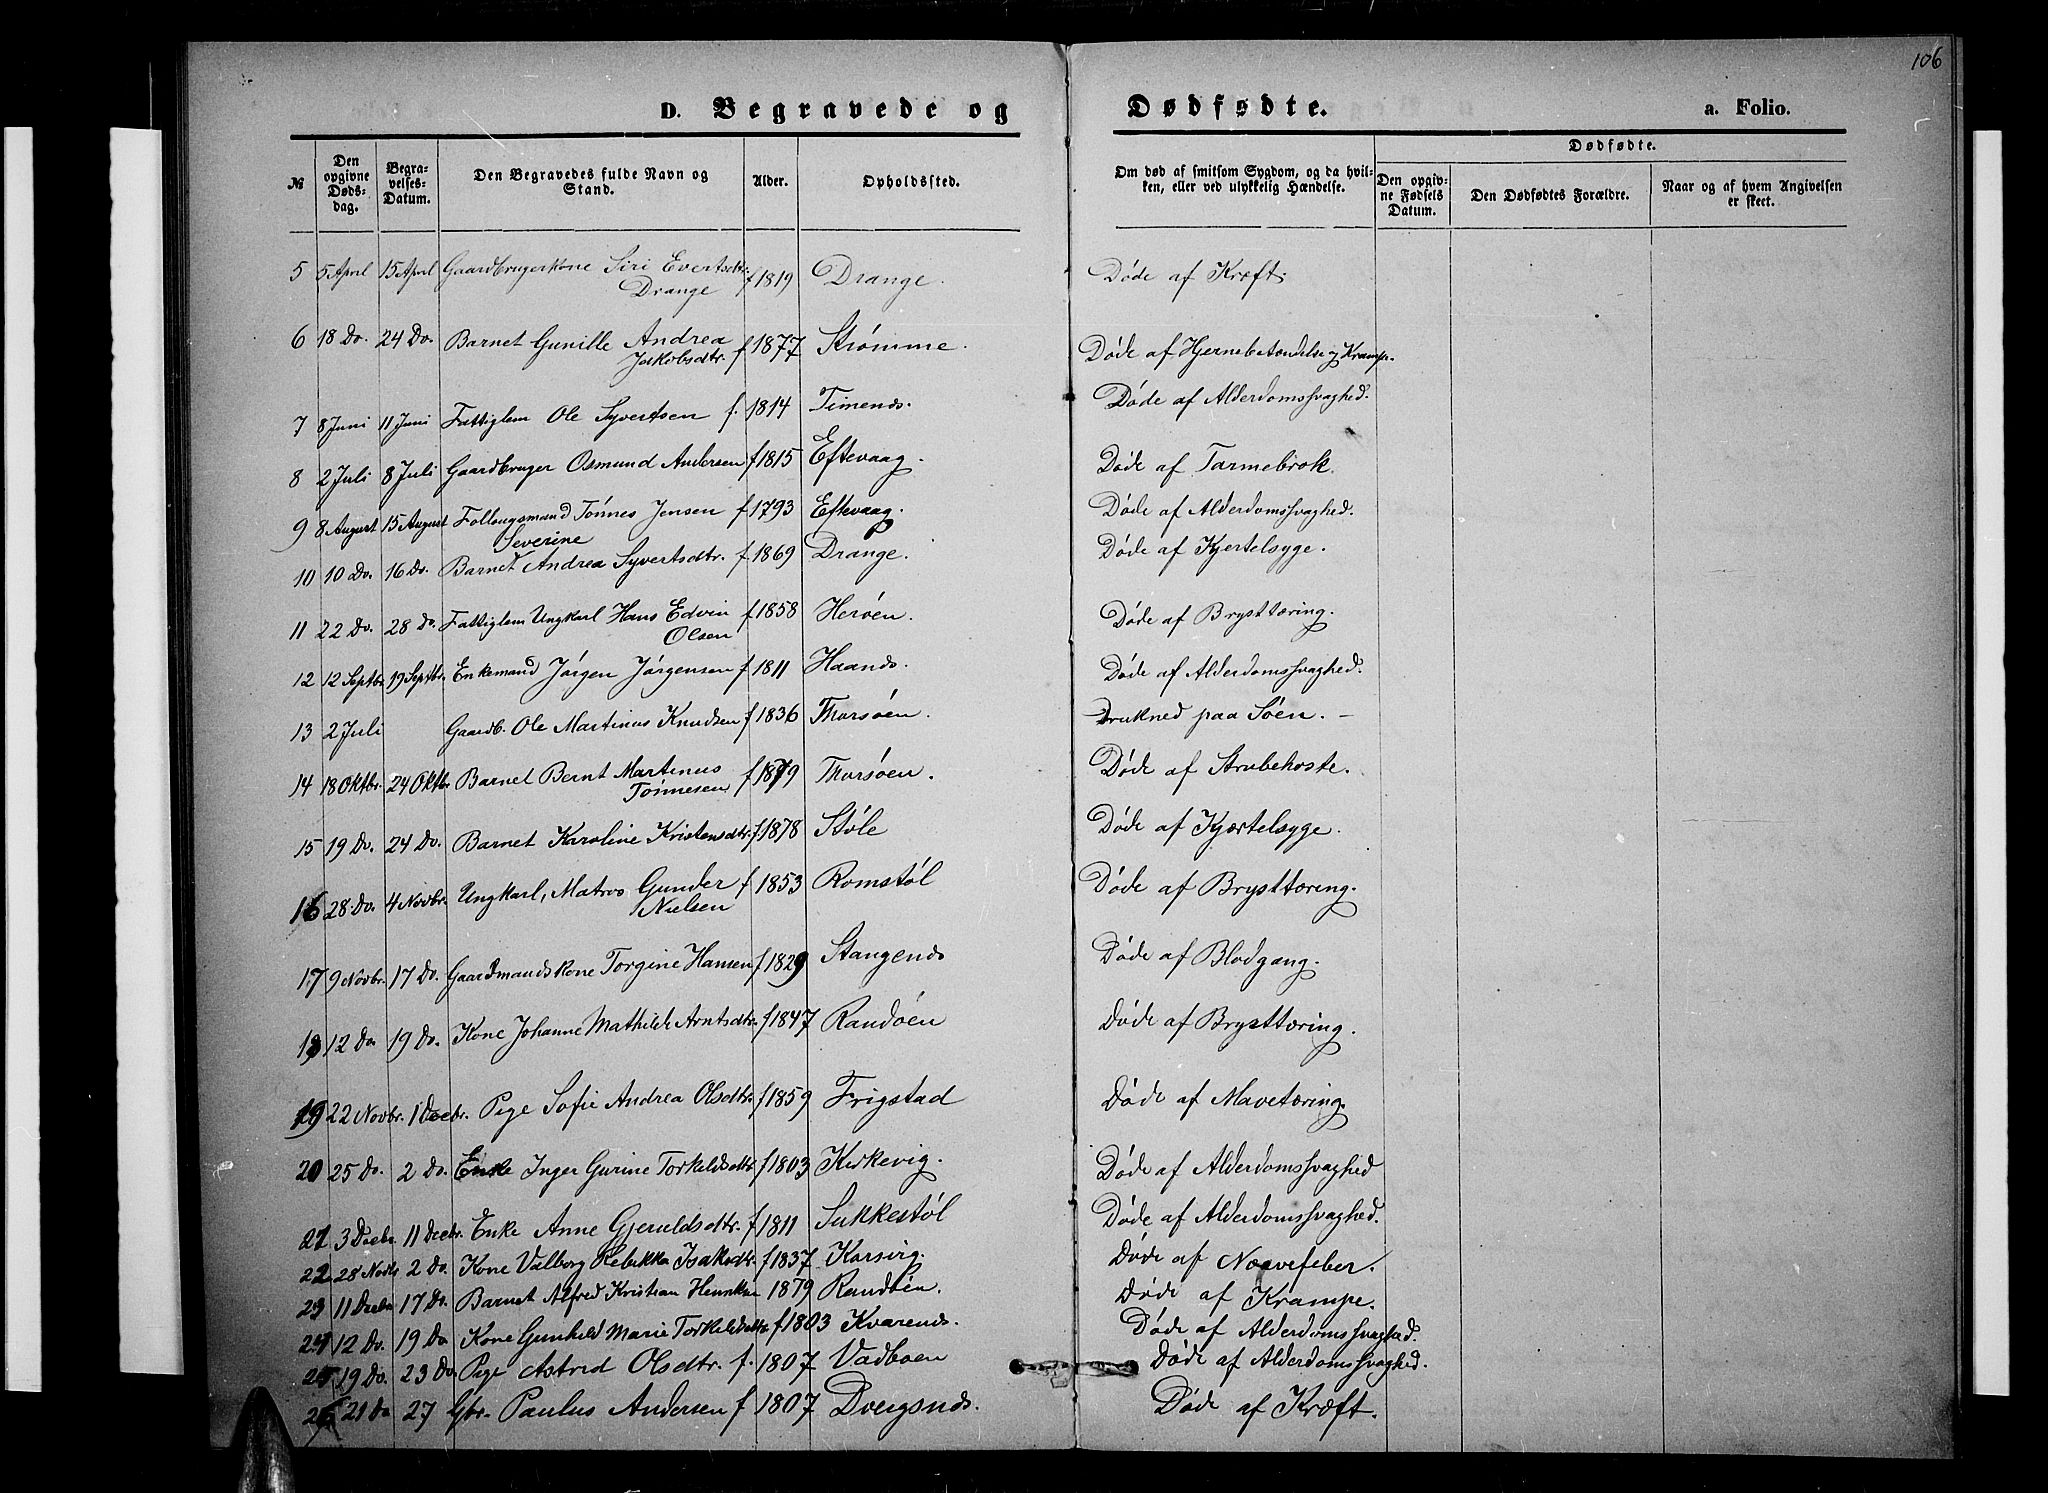 106
D. Begravede og Dødfødte. a. Folio.
№ Den opgivne Dødsdag. Begravelses-Datum. Den Begravedes fulde Navn og Stand. Alder. Opholdssted. Om død af smitsom Sygdom, og da hvilken, eller ved ulykkelig Hændelse. Dødfødte. Den opgivne Fødsels Datum. Den Dødfødtes Forældre. Naar og af hvem Angivelsen er skeet.
5 5 April 15 April Gaardbrugerkone Siri Evertsdtr. f 1819 Drange. Døde af Kræft.
Drange
6 18 Do. 24 Do. Barnet Gunille Andrea f 1877 Strømme. Døde af Hjernebetændelse og Krampe.
Jakobsdtr.
7 8 Juni 11 Juni Fattiglem Ole Syvertsen f. 1814 Timends. Døde af Alderdomssvaghed.
8 2 Juli 8 Juli Gaardbruger Osmund Andersen f 1815 Eftevaag. Døde af Tarmebrok.
9 8 August 15 August Follougsmand Tönnes Jensen f 1793 Eftevaag. Døde af Alderdomssvaghed.
Severine
10 10 Do. 16 Do. Barnet Andrea Syvertsdtr. f 1869 Drange. Døde af Kjertelsyge.
11 22 Do. 28 Do. Fattiglem Ungkarl Hans Edvin f 1858 Herøen. Døde af Brysttæring.
Olsen
12 12 Septbr. 19 Septbr. Enkemand Jørgen Jørgensen f 1811 Haands. Døde af Alderdomssvaghed.
13 2 Juli Gaardb. Ole Martinus Knudsen f 1836 Thorsøen. Drukned paa Søen. –
14 18 Oktbr. 24 Oktbr. Barnet Bernt Martinus f 1879 Thorsøen. Døde af Strubehoste.
Tönnesen
15 19 Do. 24 Do. Barnet Karoline Kristensdtr. f. 1878 Støle Døde af Kjærtelsyge.
16 28 Do. 4 Novbr. Ungkarl, Matros Gunder f 1853 Romstøl Døde af Brysttæring.
Nielsen
17 9 Novbr. 17 Do. Gaardmandskone Torgine Hansen f 1829 Stangends Døde af Blodgang.
18 12 Do. 19 Do. Kone Johanne Mathilde Arntsdtr. f 1847 Randøen Døde af Brysttæring.
19 22 Novbr. 1 Decbr. Pige Sofie Andrea Olsdtr. f 1859 Frigstad Døde af Mavetæring.
20 25 Do. 2 Do. Enke Inger Gurine Torkeldsdtr f 1803 Kirkevig. Døde af Alderdomssvaghed
21 3 Decbr. 11 Decbr. Enke Anne Gjeruldsdtr. f 1811 Sukkestøl Døde af Alderdomssvaghed.
22 28 Novbr 2 Do. Kone Valborg Rebekka Isaksdtr. f 1837 Korsvig. Døde af Nærvefeber.
23 11 Decbr 17 Do. Barnet Alfred Kristian Henriksen 1879 Randøen. Døde af Krampe.
24 12 Do. 19 Do Kone Gunhild Marie Torkeldsdtr f 1803 Kvarends. Døde af Alderdomssvaghed.
25 19 Do. 23 Do. Pige Astrid Olsdtr. f. 1807 Vadboen Døde af Alderdomssvaghed.
26 21 Do 27 Gbr. Paulus Andersen f 1807 Dvergsnds. Døde af Kræft.